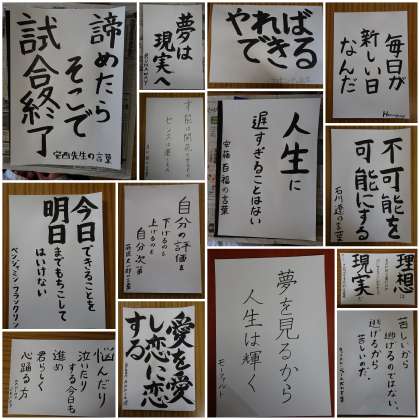 諦めたら
そこで
試合終了
安西先生の言葉
夢は
現実へ
やれば
できる
毎日が
新しい日
なんだ
人生に
遅すぎることはない
安藤百福の言葉
不可能を
可能にする
石川遼の言葉
今日できることを
明日までもちこして
はいけない
ベンジャミンフランクリン
自分の評価を
下げるのも
上げるのも
自分次第
夢を見るから
人生は輝く
モーツァルト
理想は
現実だ
苦しいから
逃げるのではない。
逃げるから
苦しいのだ。
悩んだり
泣いたり
する今日も
進め
君らしく
心踊る方
愛を愛
し恋に恋
する